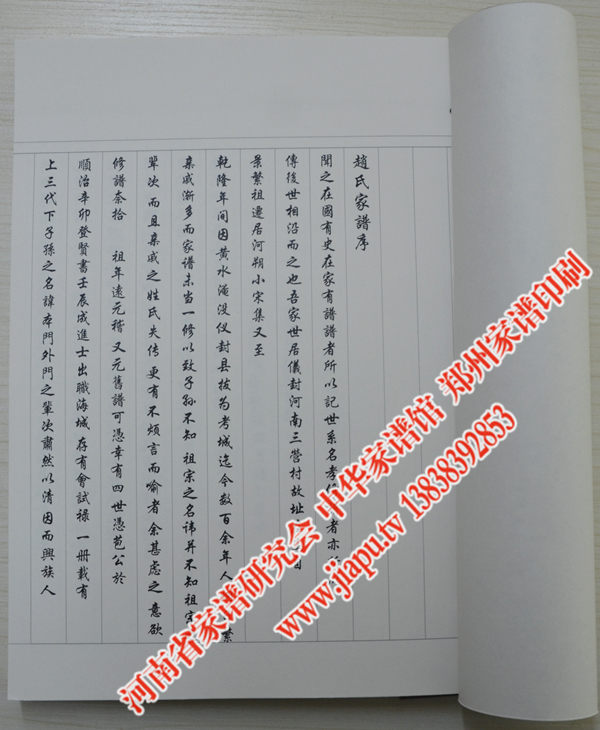 趙氏家譜序
聞之在國有史在家有譜譜者所以記世系名孝者亦
傳後世相沿而之也吾家世居儀封河南三营村故址
景繁祖遷居河朔小宋集又至
乾隆年间因黄水淹没仪封县拔为考城迄今数百余年人繁
亲戚渐多而家谱未当一修以致子孙不知 祖宗之名讳并不知祖宗
輩次而且亲戚之姓氏失传更有不烦言而喻者余甚虑之意欲
修譜奈拾 祖年遠元稽又元舊譜可憑幸有四世憑苞公於
順治辛卯登賢書壬辰成進士出職海城存有會試祿一册載有
上三代下子孫之名諱本門外門之輩次肅然以清因而興族人
河南省家谱研究会 中华家谱馆 郑州家谱印刷
www.jiapu.tv 13838392853